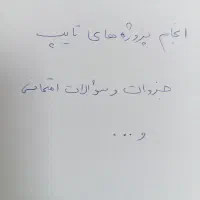 انجام پروژه های تایپ
جزوات و سوالات امتحانی
و ...